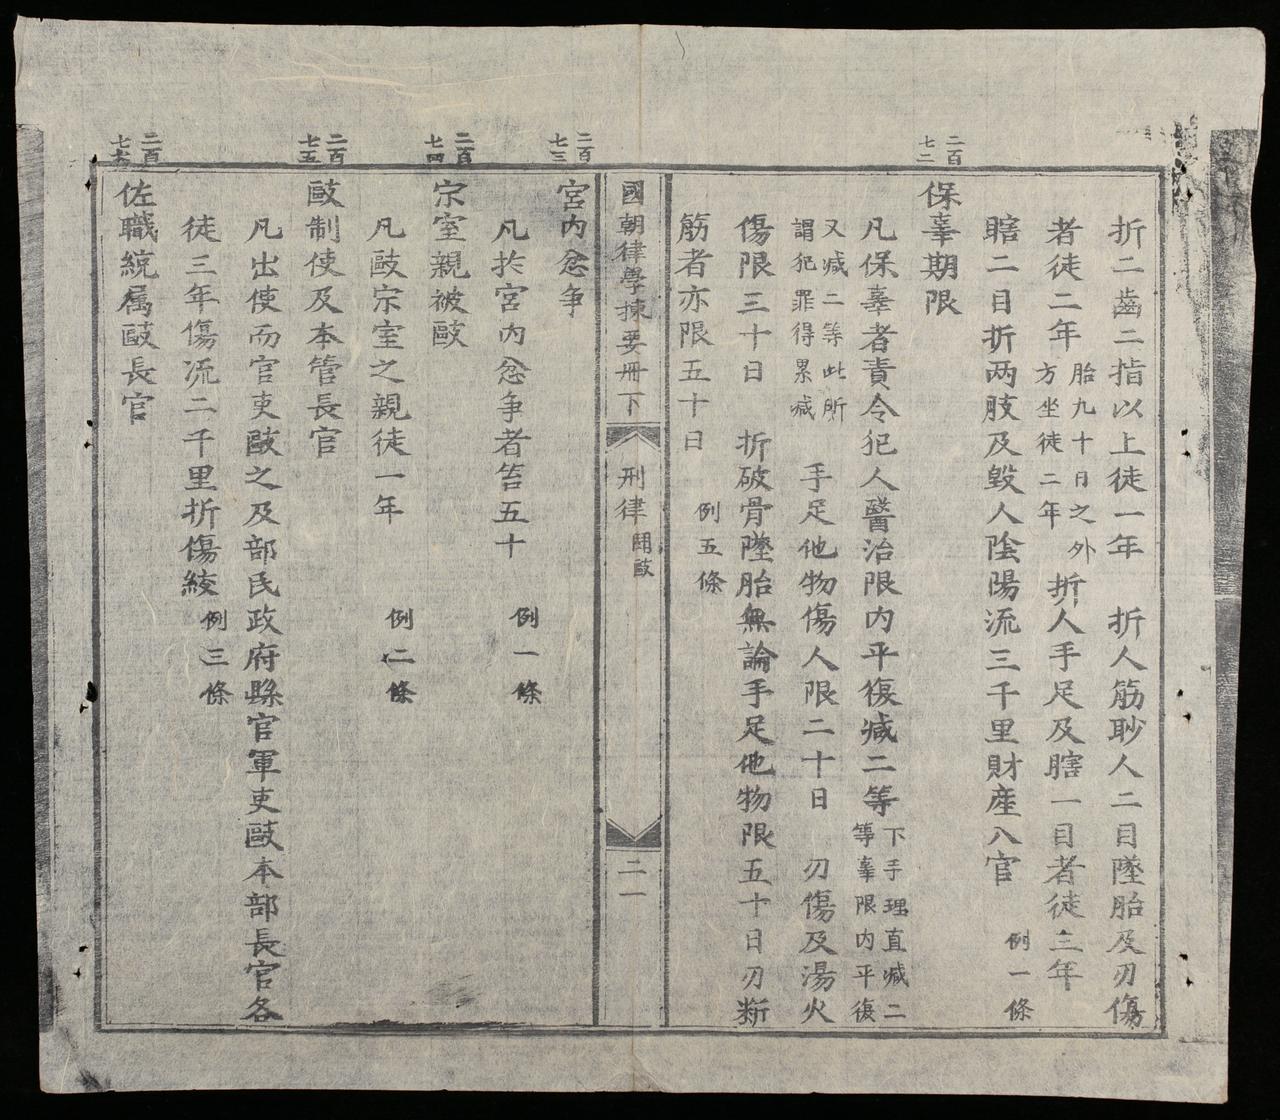 折二齒二指以上徒一年　折人筋眇人二目墜胎及刃傷
者徒二年胎九十日之外方坐徒二年折人手足及瞎一目者徒三年
瞎二目折两肢及毀人陰陽流三千里財産入官　例一條
二百七二
保辜期限
凡保辜者責令犯人醫治限内平復减二等下手理直减二等辜限内平復
又减二等此所謂犯罪得累减　手足他物傷人限二十日　刃傷及湯火
傷限三十日　折破骨墜胎無論手足他物限五十日刃斷
筋者亦限五十日　例五條
國朝律學揀要册下　刑律　鬪毆　二一
二百七三
宮内忿争
凡扵宮内忿争者笞五十　例一條
二百七四
宗室親被毆
凡毆宗室之親徒一年　例二條
二百七五
毆制使及本管長官
凡出使而官吏毆之及部民政府縣官軍吏毆本部長官各
徒三年傷流二千里折傷絞　例三條
二百七六
佐職統属毆長官